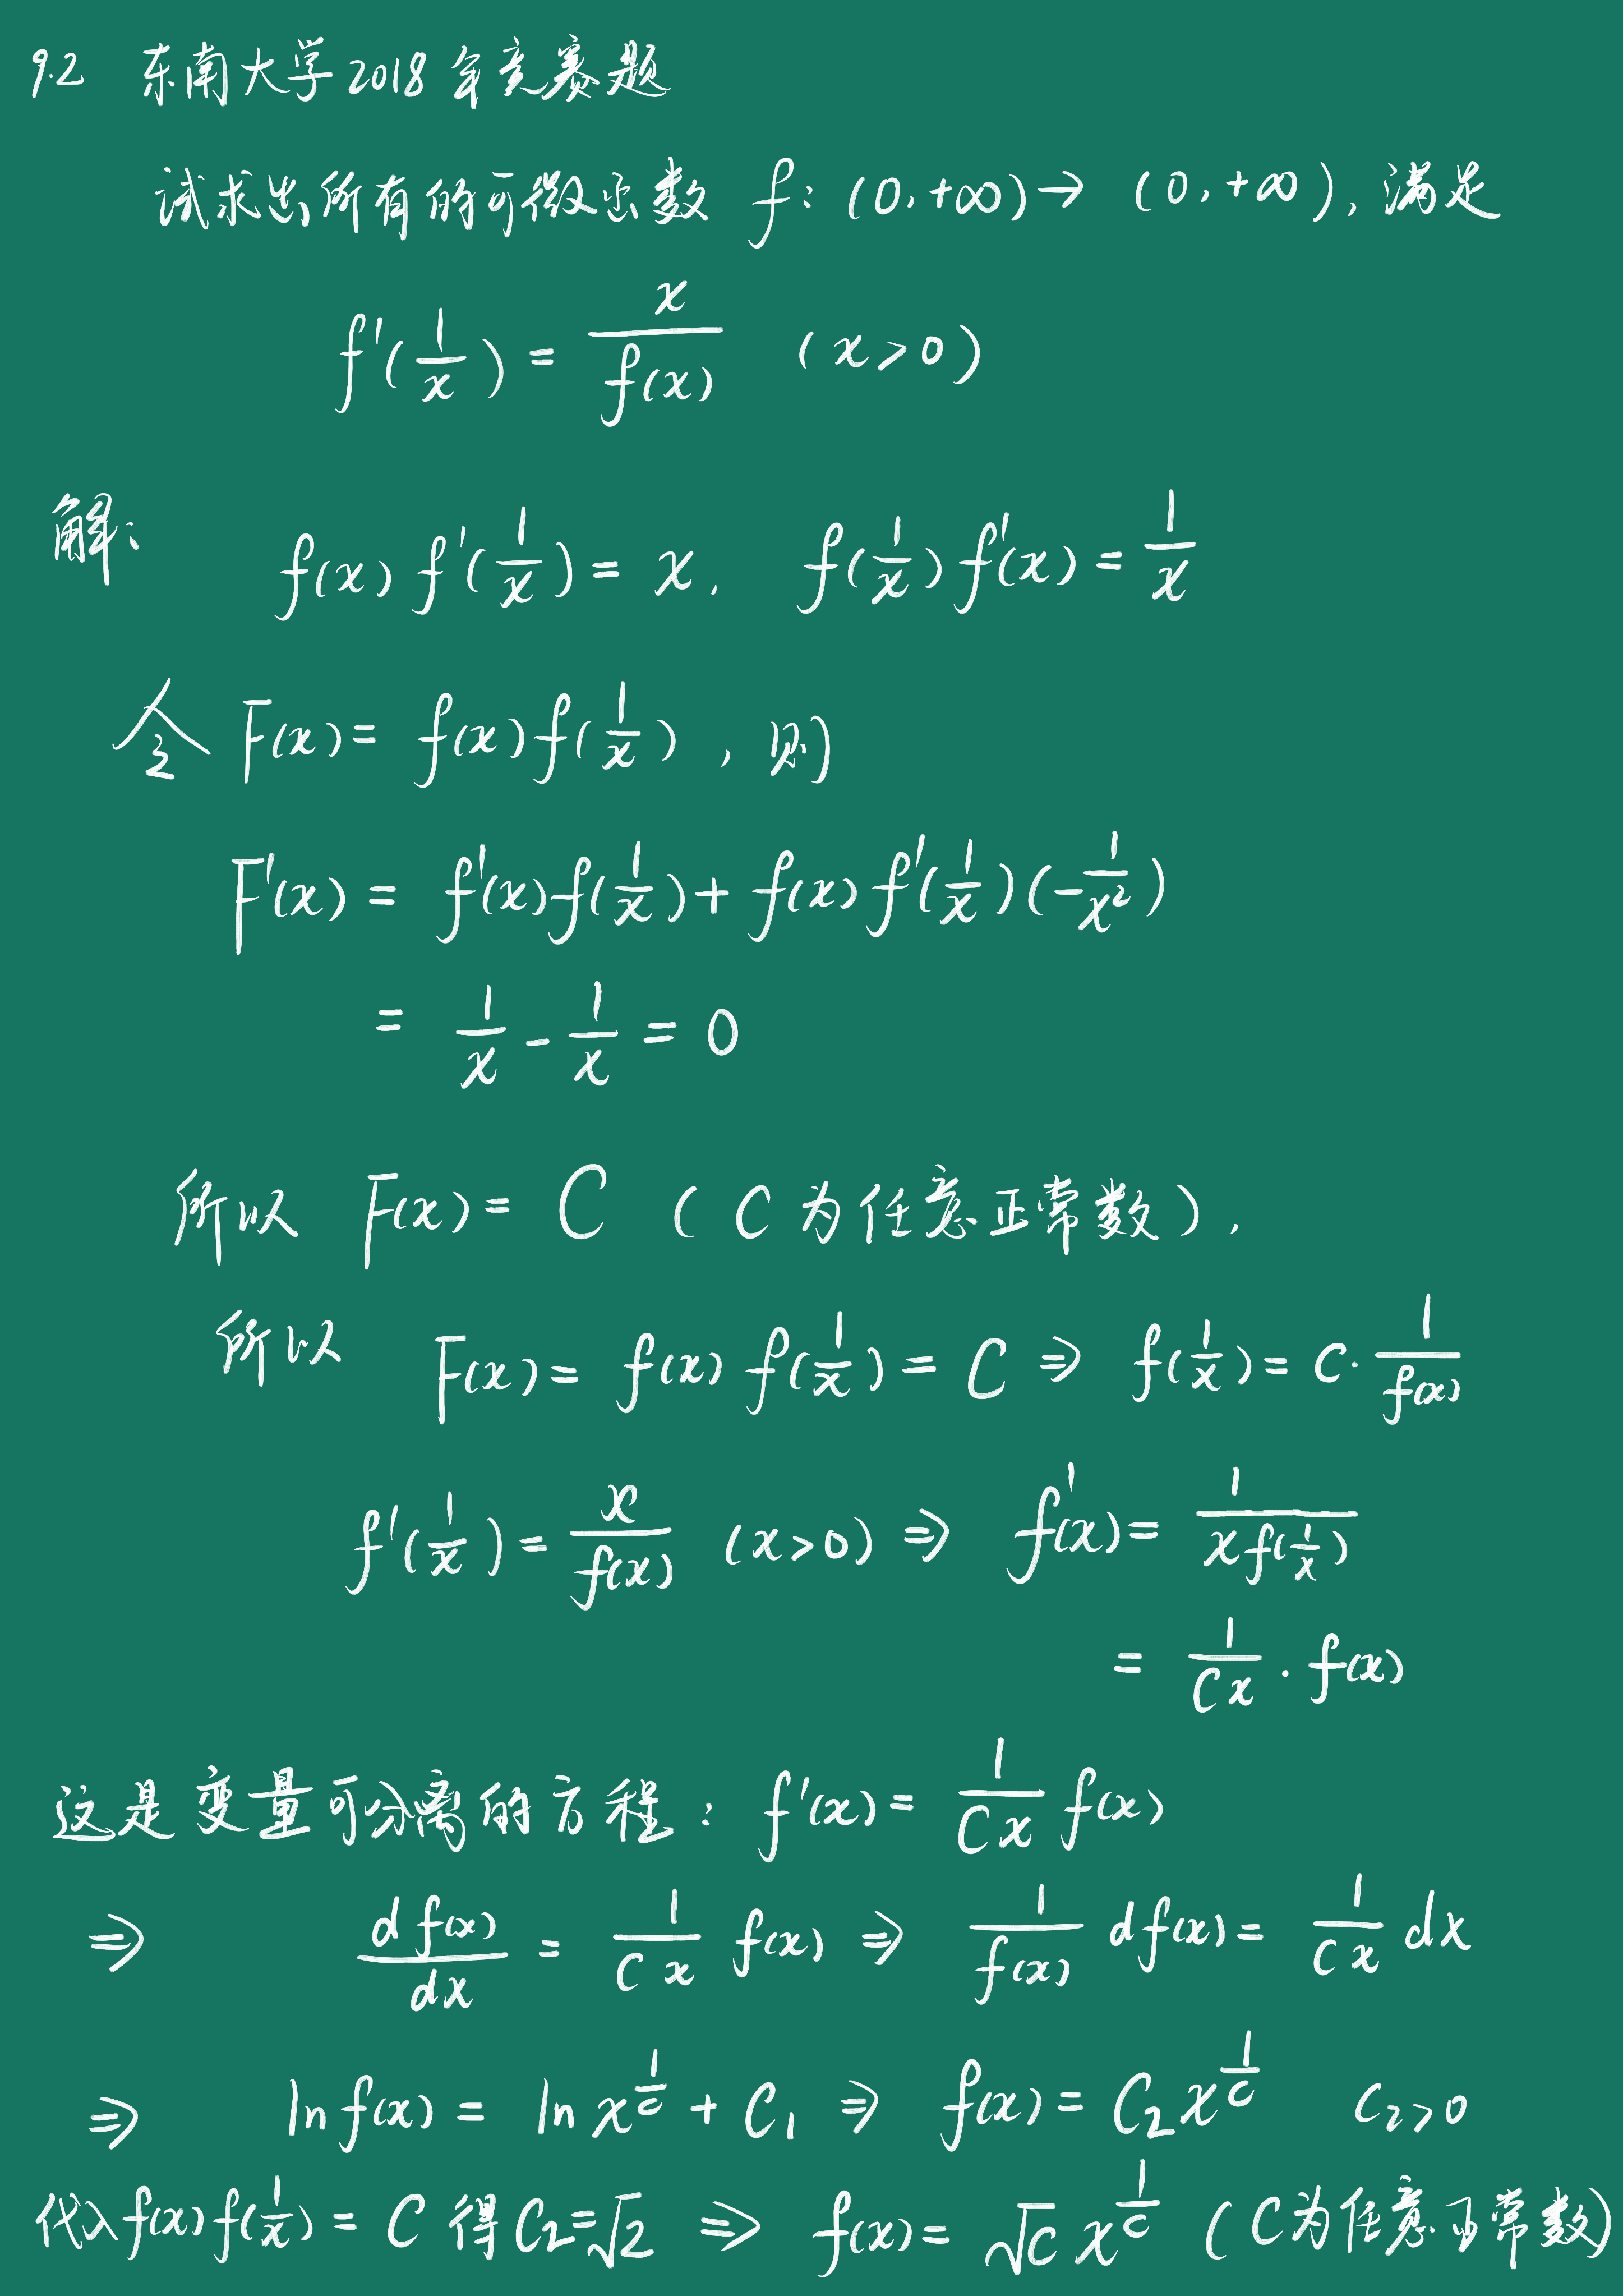 9.2 东南大学2018年竞赛题
试求出所有的可微函数 f: (0,+∞)→(0,+∞), 满足
f'(1/x) = x/f(x) (x>0)
解: f(x)f'(1/x) = x, f(1/x)f'(x) = 1/x
令 F(x) = f(x)f(1/x), 则
F'(x) = f'(x)f(1/x) + f(x)f'(1/x)(-1/x²)
= 1/x - 1/x = 0
所以 F(x) = C (C为任意正常数),
所以 F(x) = f(x)f(1/x) = C ⇒ f(1/x) = C·1/f(x)
f'(1/x) = x/f(x) (x>0) ⇒ f'(x) = 1/(xf(1/x))
= 1/(Cx)·f(x)
这是变量可分离的方程: f'(x) = 1/(Cx) f(x)
⇒ df(x)/dx = 1/(Cx) f(x) ⇒ 1/f(x) df(x) = 1/(Cx) dx
⇒ ln f(x) = ln x^(1/C) + C₁ ⇒ f(x) = C₂x^(1/C) C₂>0
代入f(x)f(1/x) = C 得C₂=√2 ⇒ f(x) = √C x^(1/C) (C为任意正常数)